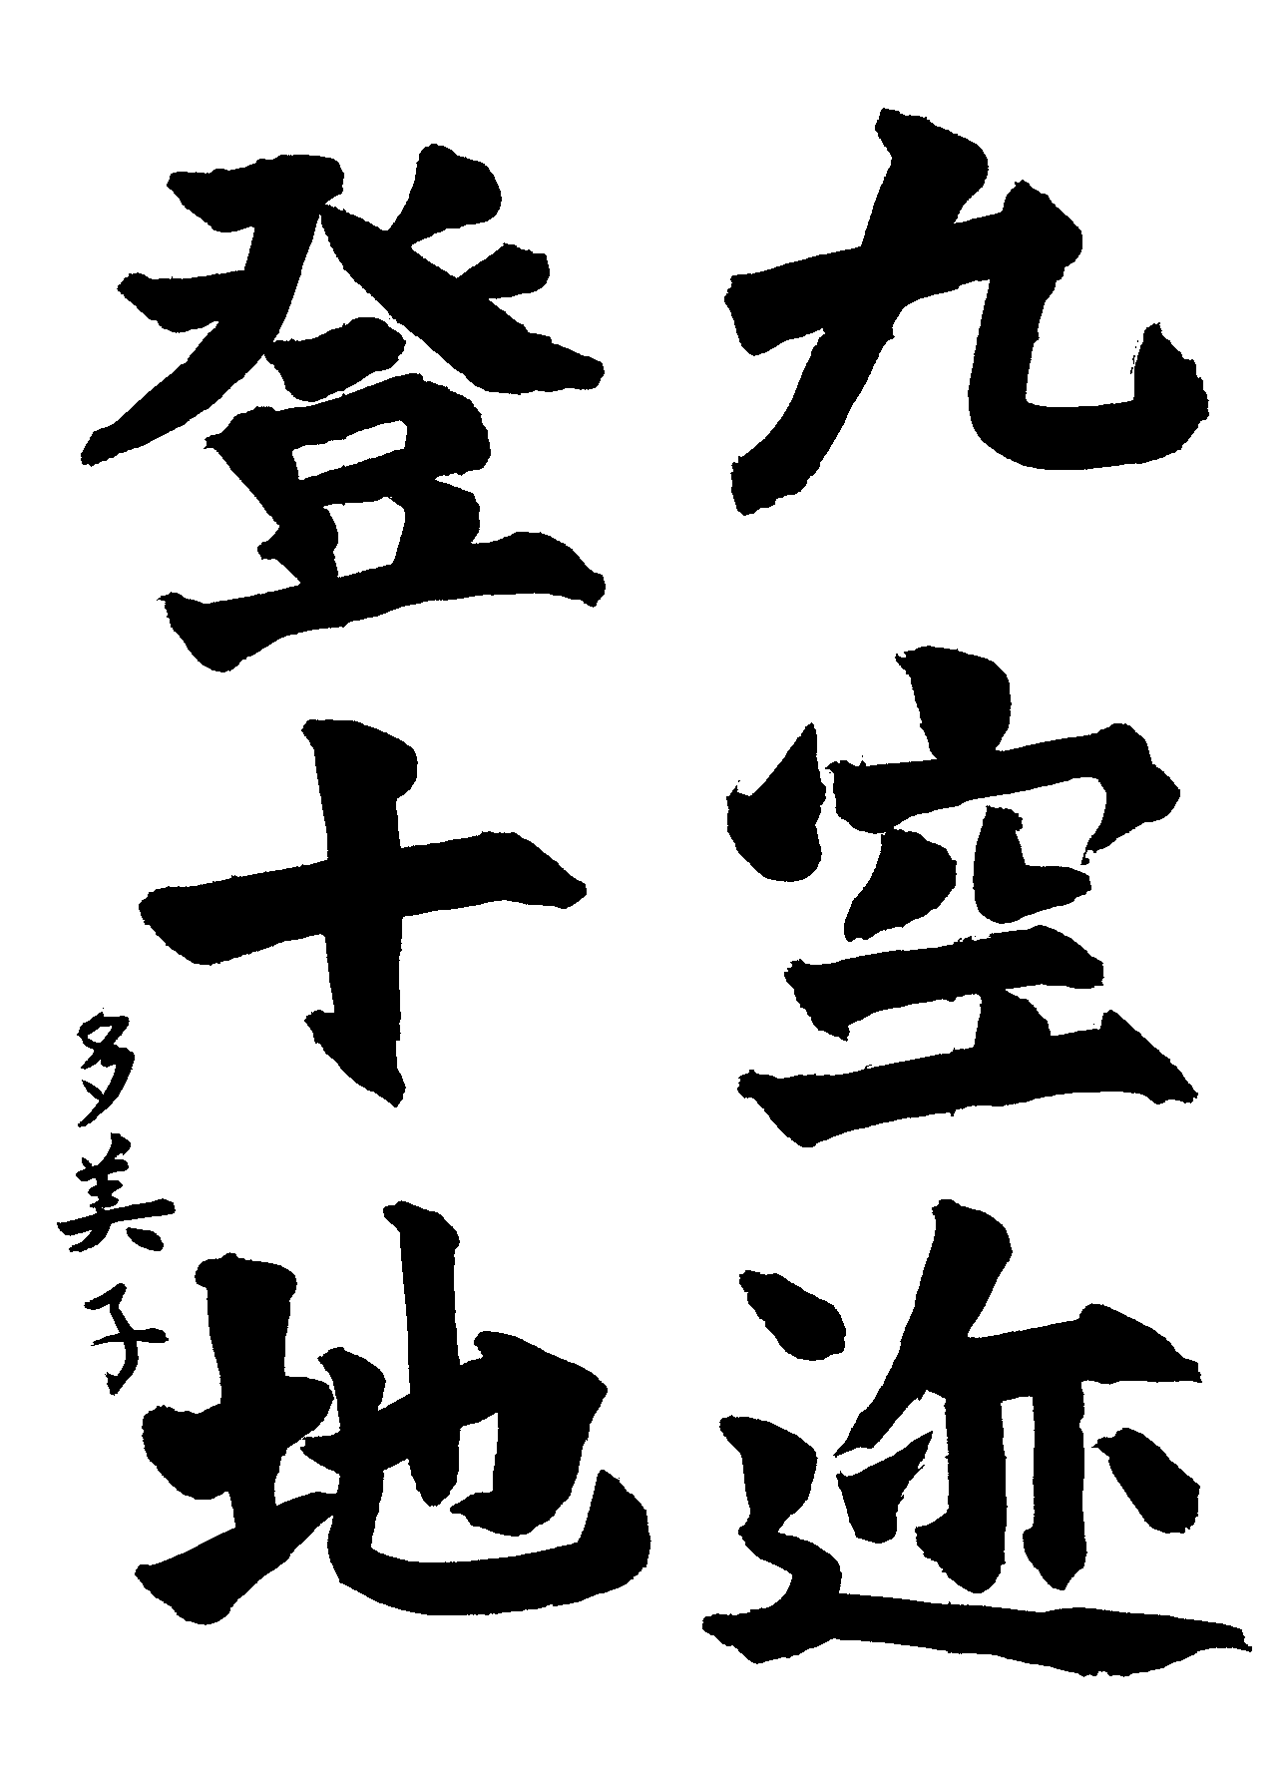 九空迹
登十地
多美子